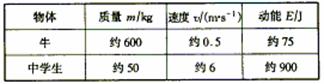 物体 质量 m/kg 速度 υ/(m·s⁻¹) 动能 E/J
牛 约600 约0.5 约75
中学生 约50 约6 约900